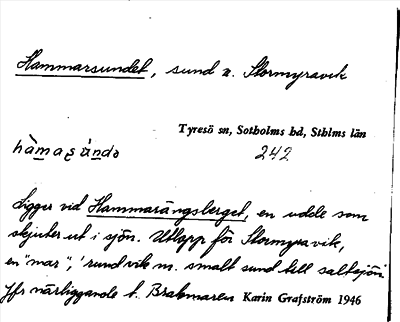 Hammarsundet, sund n. Stormyravik
Tyresö sn, Sotholms hd, Sthlms län
242
Ligger vid Hammarängsberget, en udde som
skjuter ut i sjön. Utlopp för Stormyravik,
en "mar", 'rund vik m. smalt sund till saltsjön'
Jfr närliggande t. Brakmaren Karin Grafström 1946